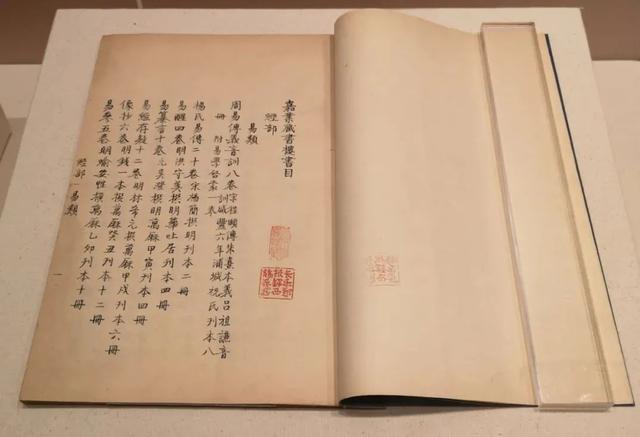 嘉業藏書樓書目
經部
易類
周易傳義音訓八卷宋程頤傳朱熹本義呂祖謙音
訓咸豐六年浦城祝氏刊本八
冊 附易學啟蒙一卷
楊氏易傳二十卷宋楊簡撰明刊本二冊
易醒四卷明洪守美撰明居刊本四冊
易纂言十卷元吳澄撰明萬厤甲寅刊本四冊
易經存疑十二卷明林希元撰萬厤甲戌刊本六冊
像抄六卷明錢一本撰萬厤癸丑刊本十二冊
易參五卷明喻安性撰萬厤乙卯刊本十冊
經部 易類
長樂鄭
振鐸西
諦藏書